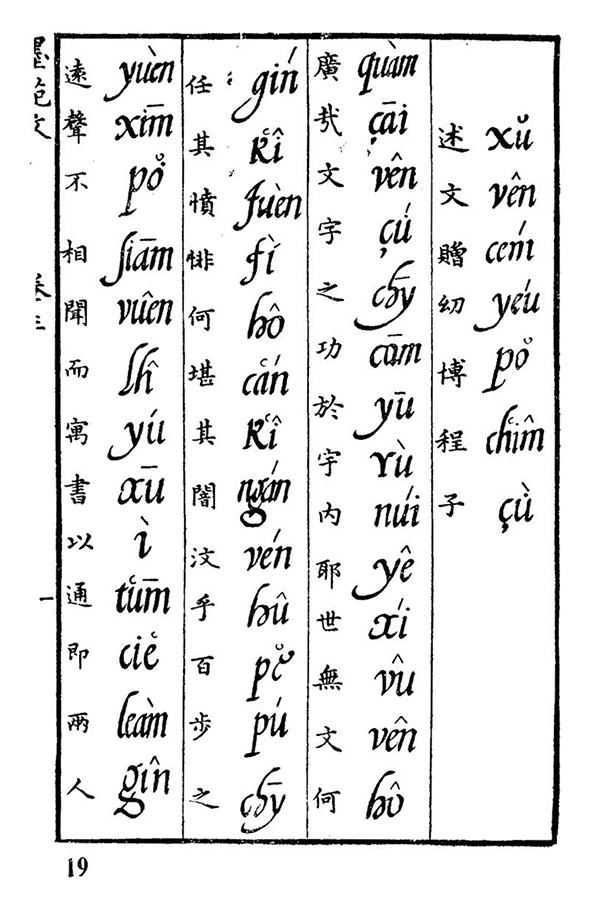 xŭ vên cém yéu pŏ c̔hîm çù
述文贈幼博程子
quàm çāi vên çú chȳ cūm yū yù núi yê xí vû vên hô
廣哉文字之功於宇内耶世無文何
gín k̔î fuèn fì hô c̔án k̔î ngán vén hû pĕ pú chȳ
任其憤悱何堪其闇汶乎百步之
yuèn xīm pŏ siām vuên lĥ yú xū ì t̔ūm ciĕ leàm gîn
遠聲不相聞而寓書以通即兩人
墨苑文
一
19